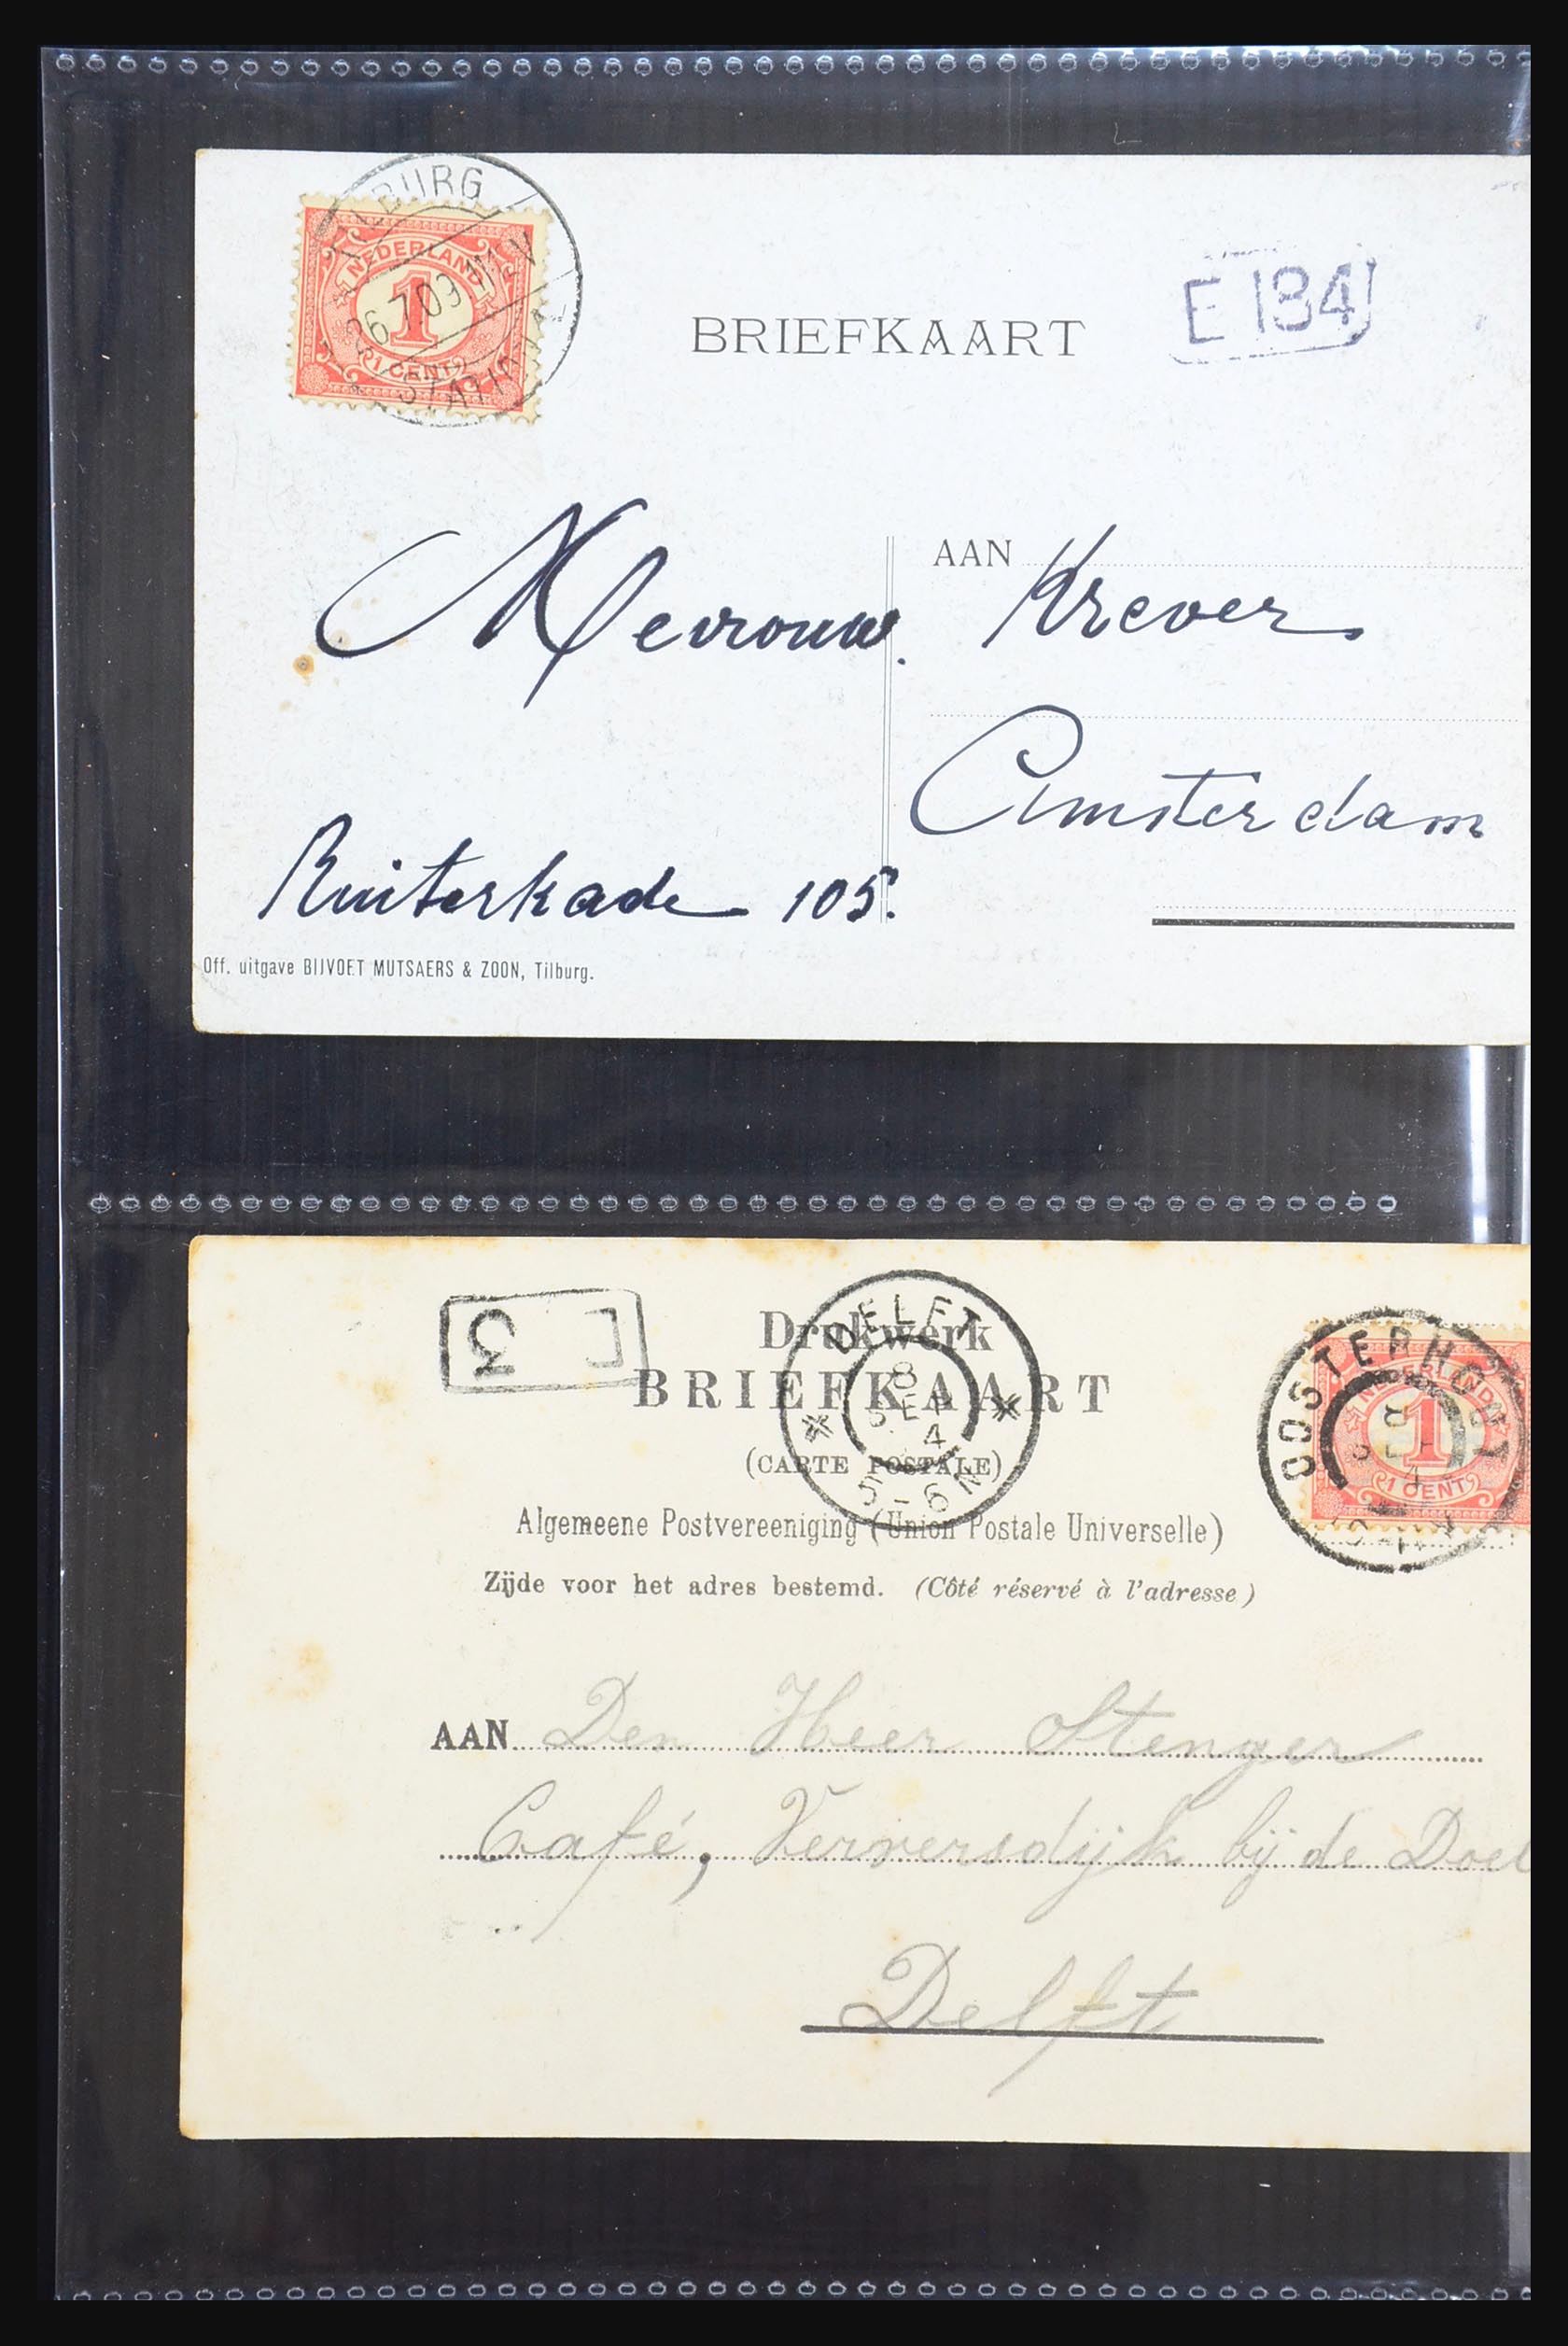 TILBURG
NEDERLAND
26.7.09 11-12 V
1
1 CENT
STATION
E 134
BRIEFKAART
AAN
Mevrouw. Krever
Amsterdam
Ruiterkade 105.
Off. uitgave BIJVOET MUTSAERS & ZOON, Tilburg.
3
DELFT
8
SEP
4
5-6 N
Drukwerk
BRIEFKAART
(CARTE POSTALE)
Algemeene Postvereeniging (Union Postale Universelle)
Zijde voor het adres bestemd. (Côté réservé à l'adresse)
OOSTERHOUT
NEDERLAND
1
1 CENT
AAN Den Heer Stenger
Café, Verversdijk bij de Doel
Delft